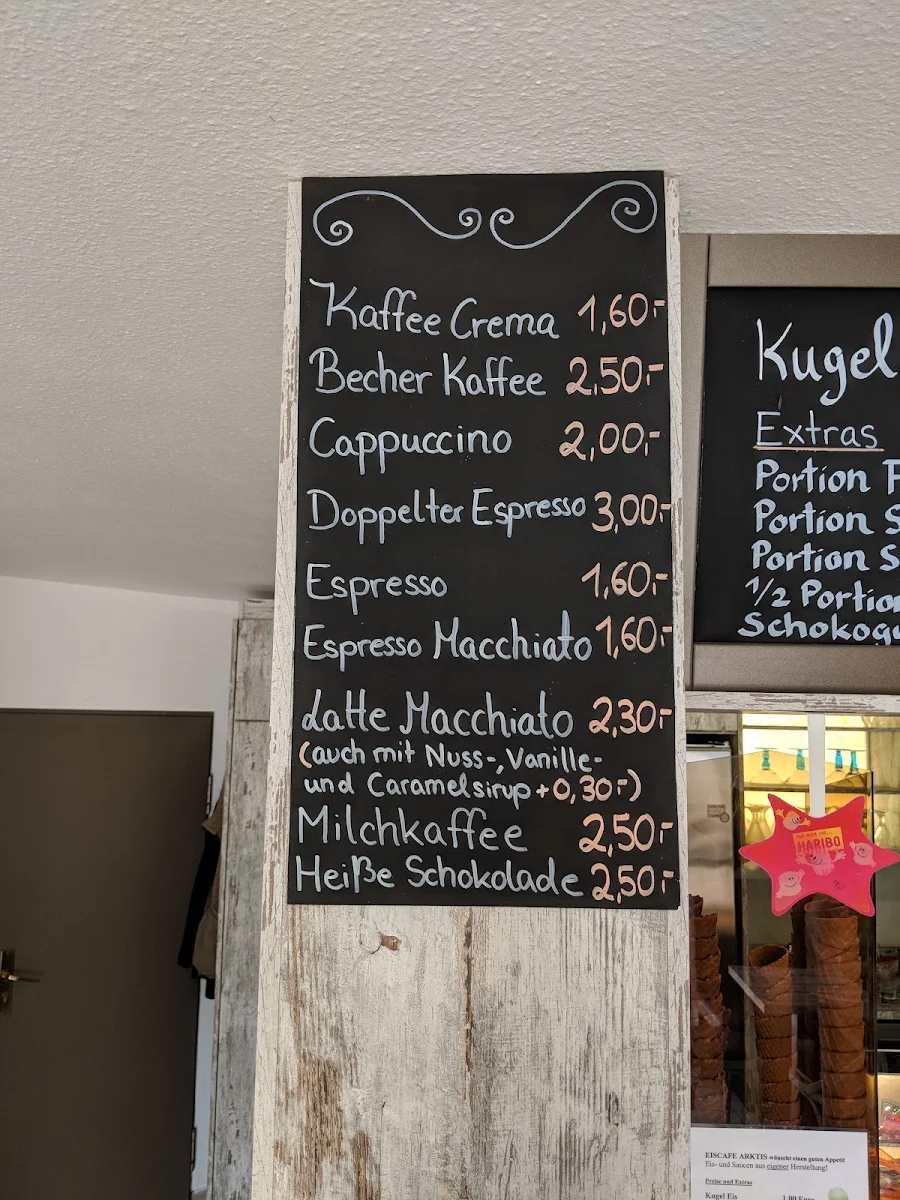 Kaffee Crema 1,60.-
Becher Kaffee 2,50.-
Cappuccino 2,00.-
Doppelter Espresso 3,00.-
Espresso 1,60.-
Espresso Macchiato 1,60.-
Latte Macchiato 2,30.-
(auch mit Nuss-, Vanille-
und Caramelsirup + 0,30.-)
Milchkaffee 2,50.-
Heiße Schokolade 2,50.-
Kugel
Extras
Portion
Portion
Portion
1/2 Portion
HARIBO
EISCAFE ARKTIS wünscht einen guten Appetit
Eis- und Saucen aus eigener Herstellung!
Preise und Extras
Kugel Eis 1,00 Euro